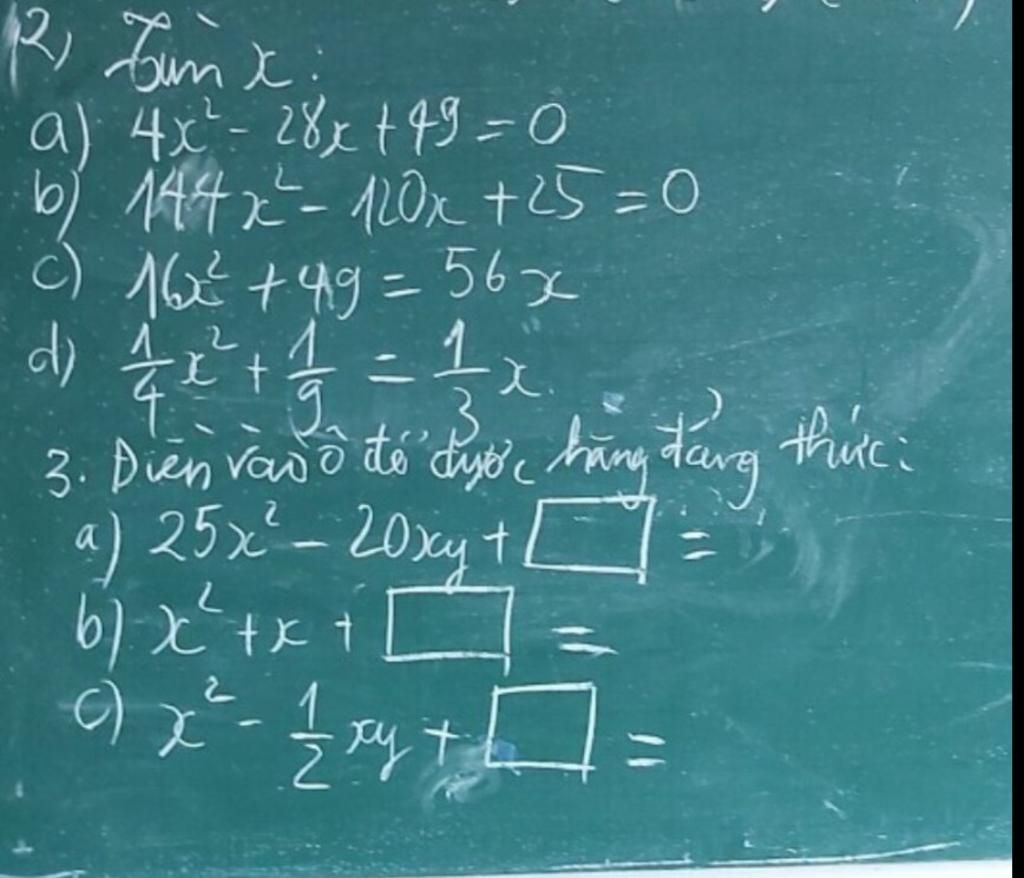 2, Tìm x:
a) 4x² - 28x + 49 = 0
b) 144x² - 120x + 25 = 0
c) 16x² + 49 = 56x
d) 1/4 x² + 1/9 = 1/3 x
3. Điền vào ô để được hằng đẳng thức:
a) 25x² - 20xy + □ =
b) x² + x + □ =
c) x² - 1/2 xy + □ =